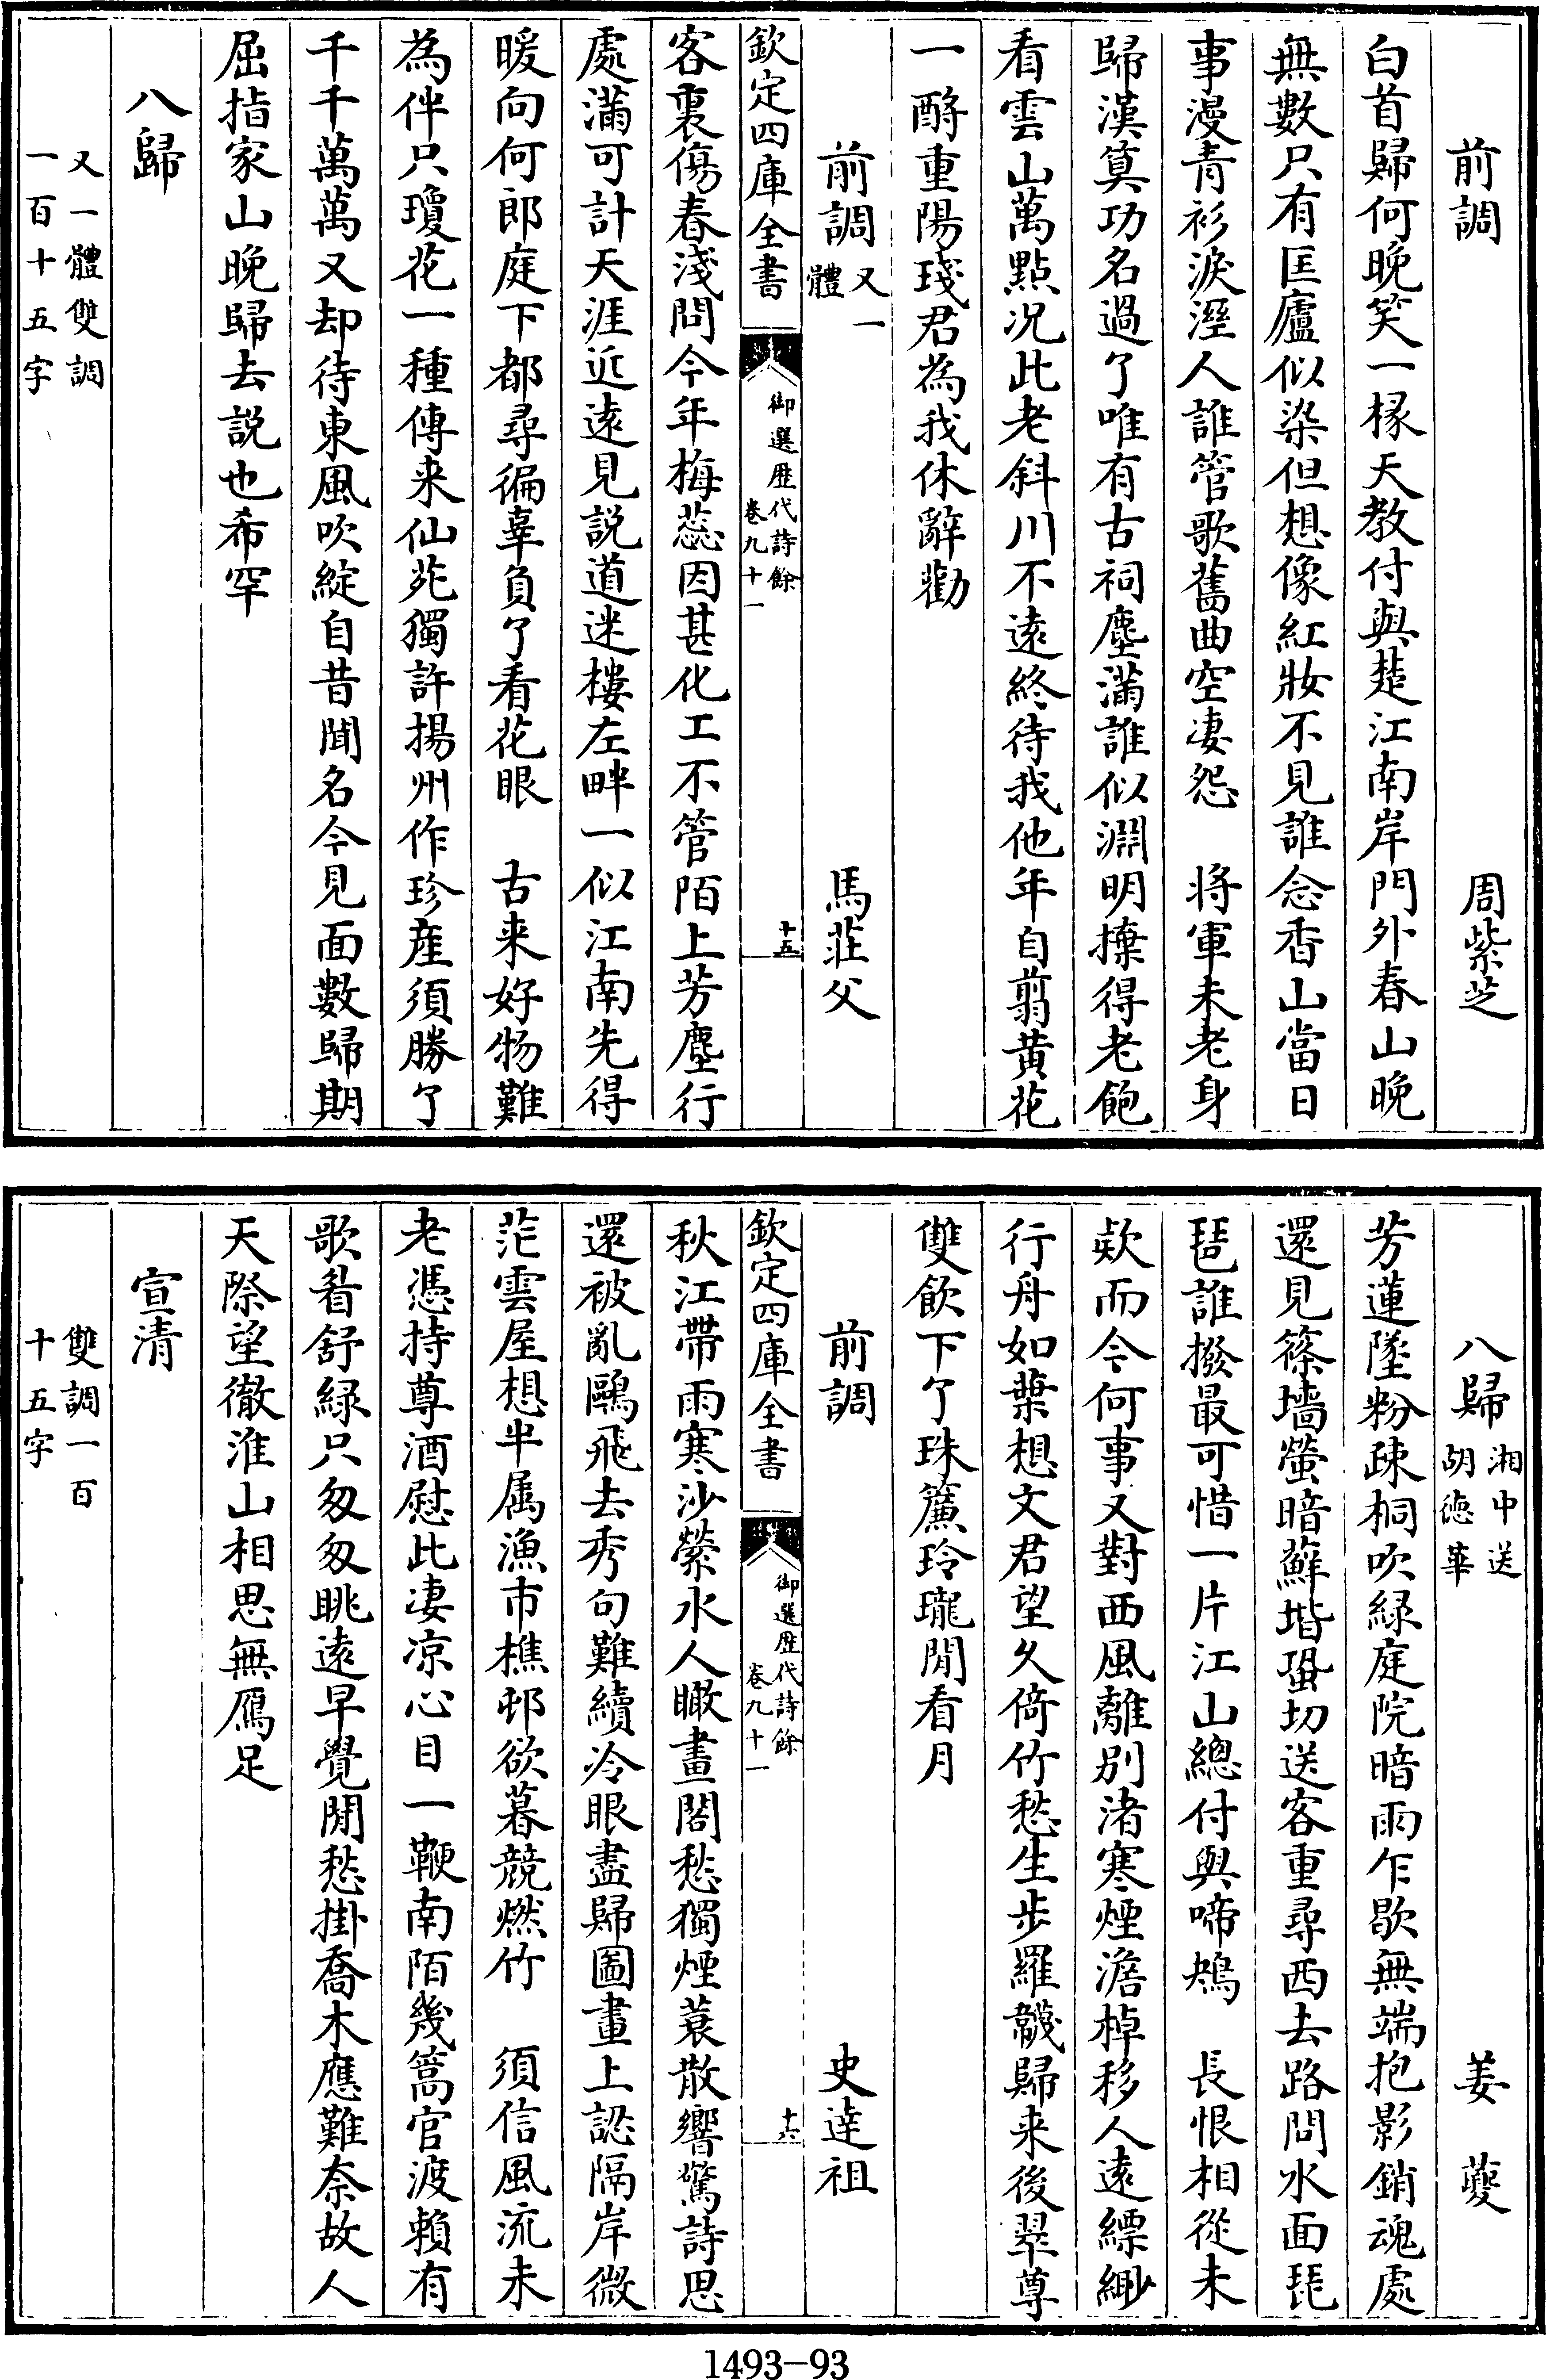 前調　周紫芝
白首歸何晚笑一椽天教付與楚江南岸門外春山晚
無數只有匡廬似染但想像紅妝不見誰念香山當日
事漫青衫淚溼人誰管歌舊曲空淒怨　將軍未老身
歸漢算功名過了唯有古祠塵滿誰似淵明揀得老飽
看雲山萬點况此老斜川不遠終待我他年自翦黄花
一酹重陽琖君為我休辭勸
前調又一體　馬莊父
欽定四庫全書　御選歴代詩餘卷九十一　十五
客裏傷春淺問今年梅蕊因甚化工不管陌上芳塵行
處滿可計天涯近遠見説道迷樓左畔一似江南先得
暖向何郎庭下都尋徧辜負了看花眼　古来好物難
為伴只瓊花一種傳来仙苑獨許揚州作珍産須勝了
千千萬萬又却待東風吹綻自昔聞名今見面數歸期
屈指家山晚歸去説也希罕
八歸
又一體雙調
一百十五字
八歸湘中送胡徳華　姜夔
芳蓮墜粉疎桐吹緑庭院暗雨乍歇無端抱影銷魂處
還見篠墻螢暗蘚堦蛩切送客重尋西去路問水面琵
琶誰撥最可惜一片江山總付與啼鴂　長恨相從未
欵而今何事又對西風離別渚寒煙澹棹移人遠縹緲
行舟如葉想文君望久倚竹愁生步羅韈歸来後翠尊
雙飲下了珠簾玲瓏閒看月
前調　史達祖
欽定四庫全書　御選歴代詩餘卷九十一　十六
秋江帶雨寒沙縈水人瞰畫閣愁獨煙蓑散響驚詩思
還被亂鷗飛去秀句難續冷眼盡歸圖畫上認隔岸微
茫雲屋想半属漁市樵邨欲暮競燃竹　須信風流未
老憑持尊酒慰此凄凉心目一鞭南陌幾篙官渡賴有
歌眉舒緑只匆匆眺遠早覺閒愁掛喬木應難奈故人
天際望徹淮山相思無鴈足
宣清
雙調一百
十五字
1493-93